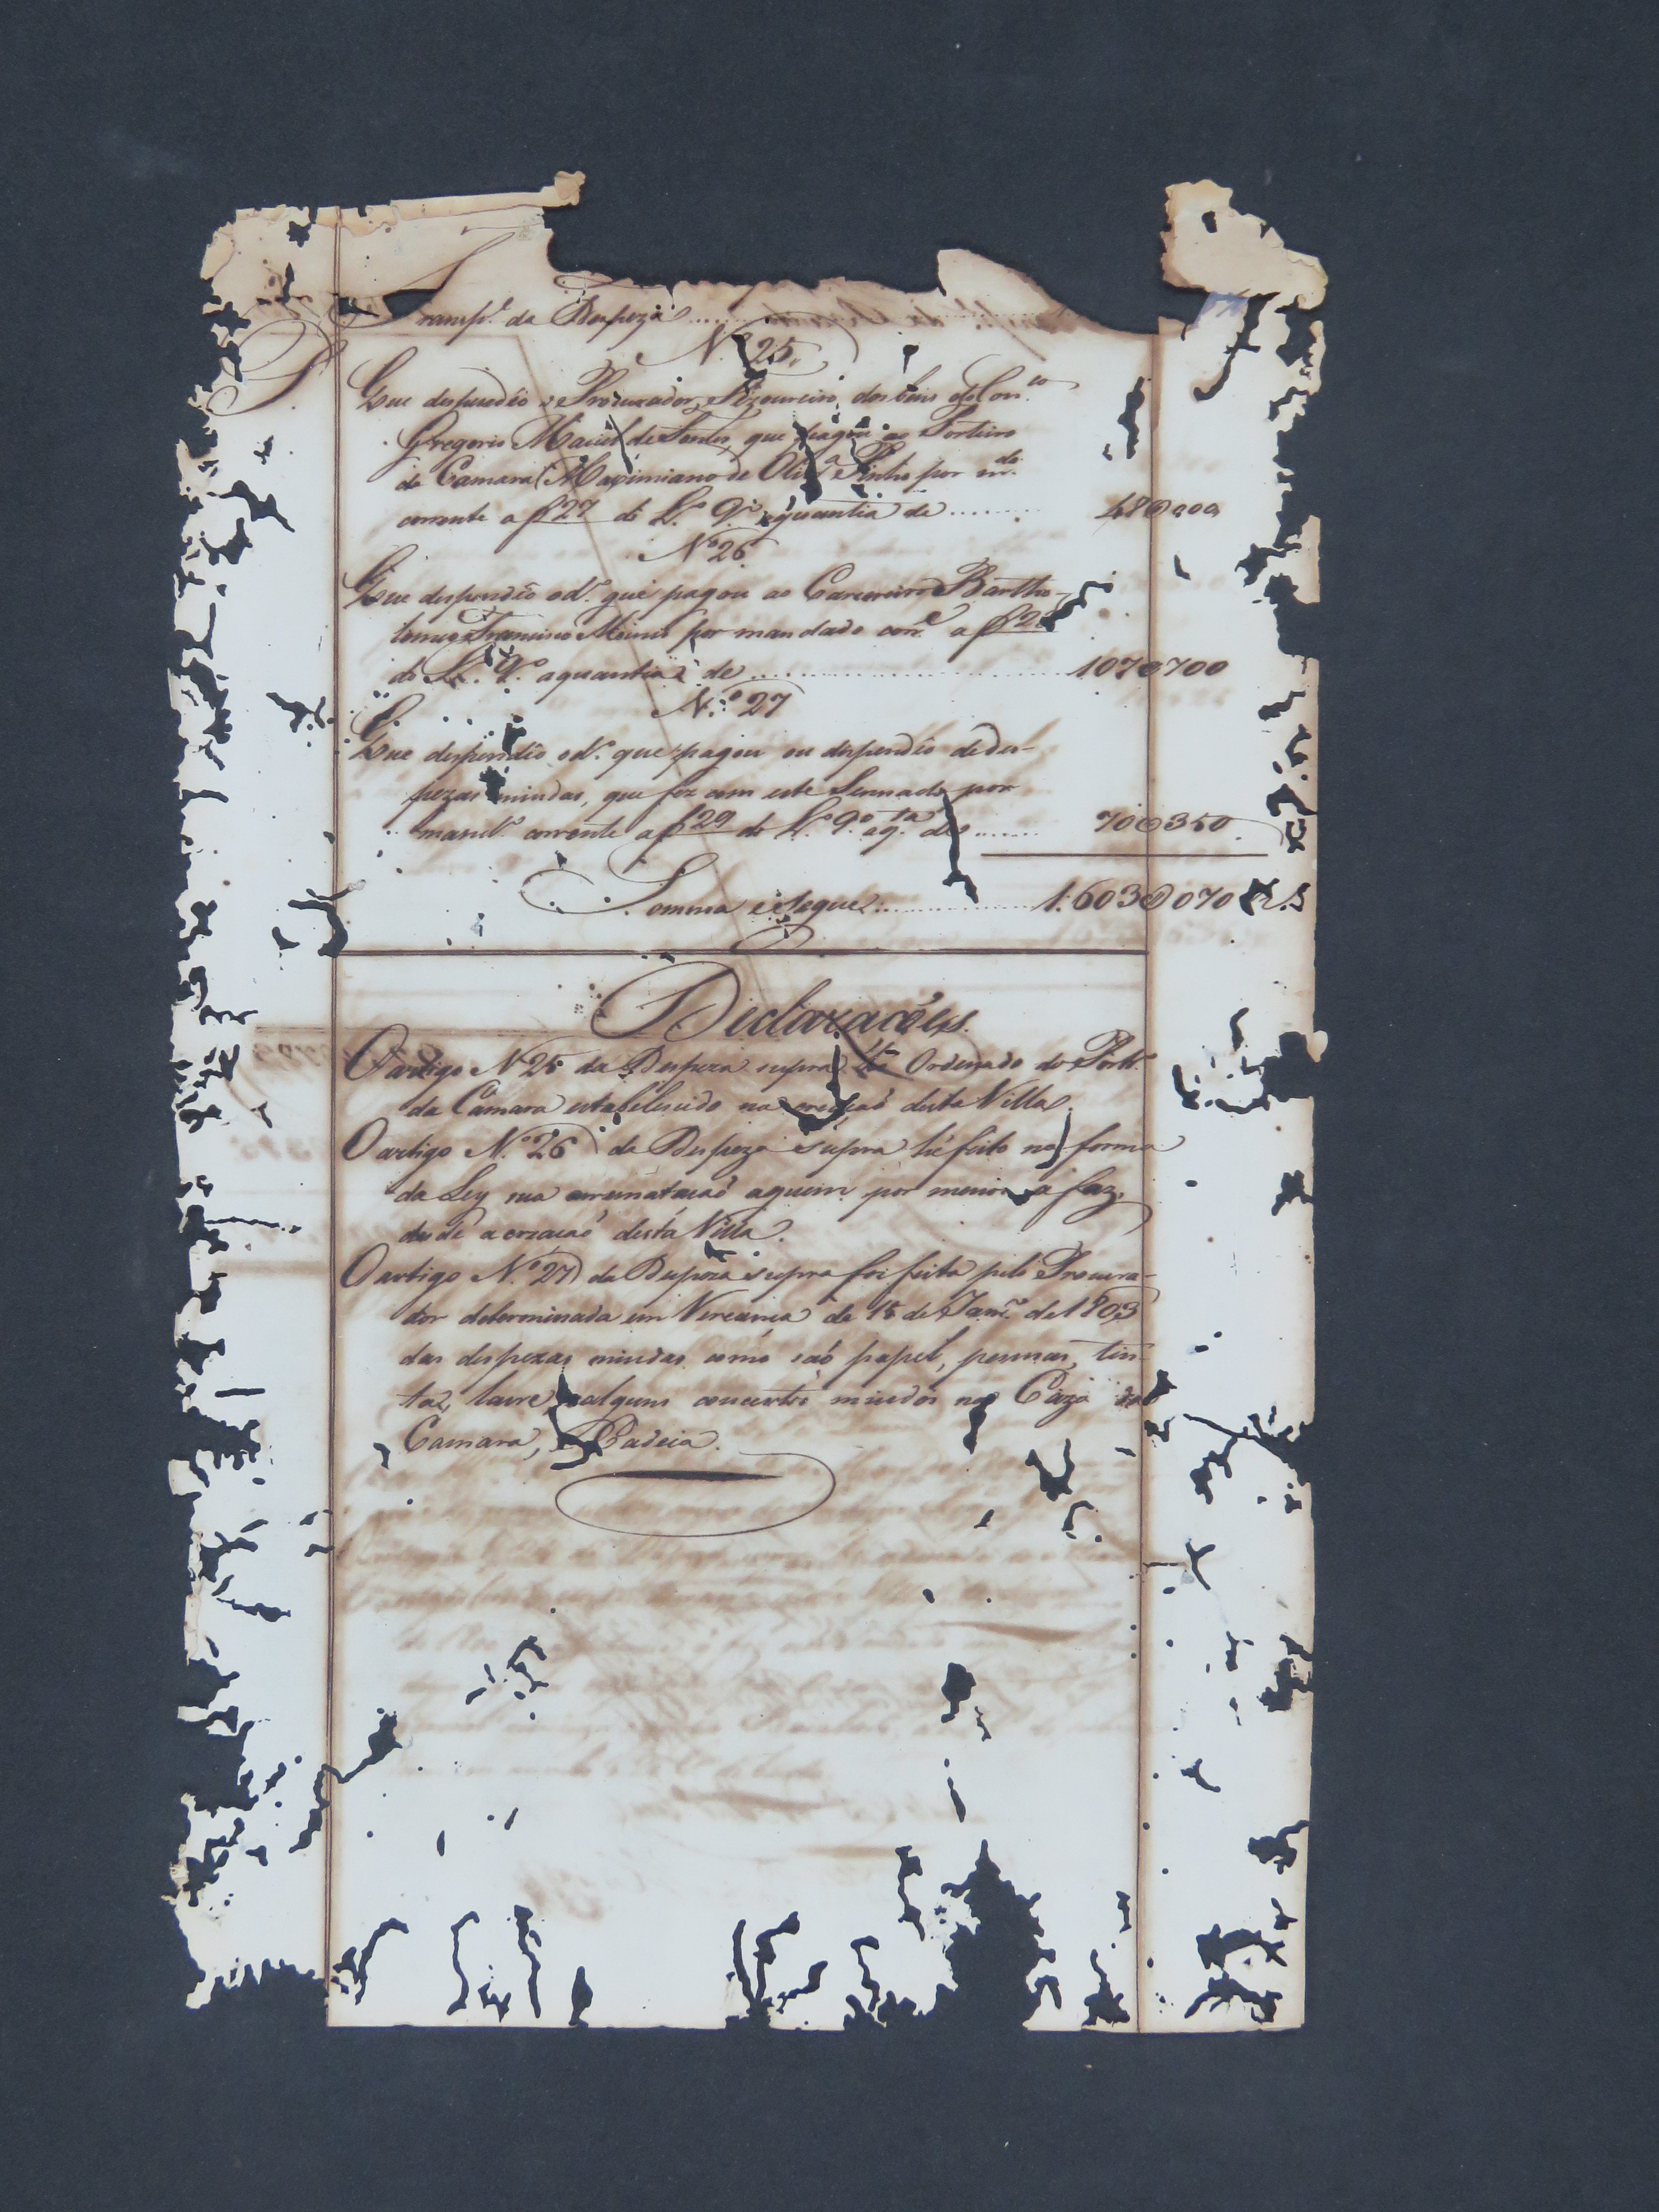 Transp.e da Despeza
N.º 25.
Que despendêo o Procurador, Tizoureiro dos bens do Con.co
Gregorio Maciel de Sontes, que pagou ao Porteiro
da Camara Maximiano de Oliv.a Pinto por m.do
corrente a f 27 do L.º 9.º aquantia de 48@000
N.º 26
Que despendêo od.º que pagou ao Carcereiro Bartho-
lomeo Francisco por mandado corr.e a f
do L.º 9.º aquantia de 107@700
N.º 27
Que despendêo od.º que pagou ou despendêo de des-
pezas miudas, que fez com este Sennado por
mand.º corrente a f 29 do L.º 9.º aq.ta de 70@350
Somma e Segue 1.603@070 R.s
Declaraçoẽs.
O artigo N 25 da Despeza supra hé Ordenado do Port.
da Câmara estabelecido na creaçaõ desta Villa.
O artigo N.º 26 da Despeza supra hé feito na forma
da Ley sua arrematacaõ aquem por menos a faz,
desde a creacaõ desta Villa.
O artigo N.º 27 da Despeza supra foi feita pelo Procura-
dor determinada em Vereança de 15 de Jan.ro de 1803
das despezas miudas como saõ papel, pennas, tin-
tas, lacre, e alguns concertos miudos na Caza da
Camara, e Cadeia.